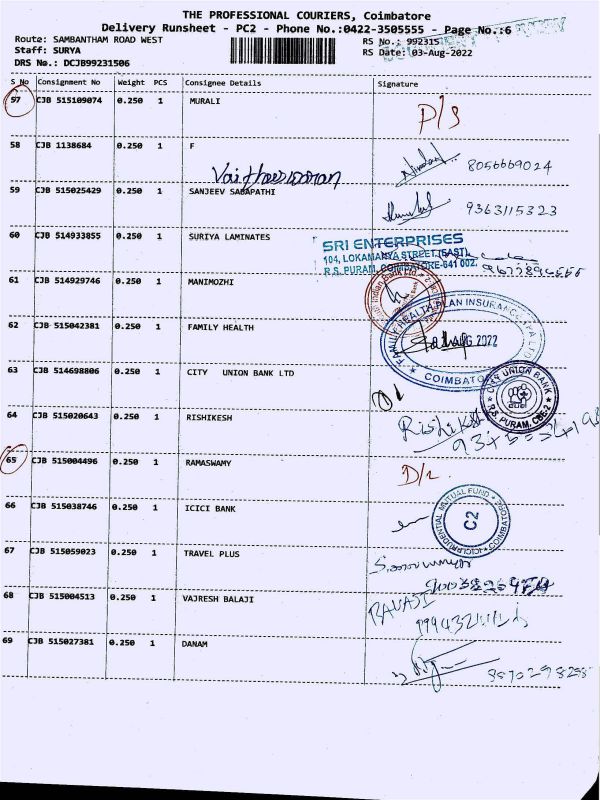 THE PROFESSIONAL COURIERS, Coimbatore
Delivery Runsheet - PC2 - Phone No.:0422-3505555 - Page No.:6
Route: SAMBANTHAM ROAD WEST
RS No.: 992315
Staff: SURYA
RS Date: 03-Aug-2022
DRS No.: DCJB99231506
S No Consignment No Weight PCS Consignee Details Signature
57 CJB 515109074 0.250 1 MURALI
58 CJB 1138684 0.250 1 F
8056669024
Vaitheeswaran
59 CJB 515025429 0.250 1 SANJEEV SABAPATHI
9363115323
60 CJB 514933855 0.250 1 SURIYA LAMINATES
SRI ENTERPRISES
104, LOKAMANYA STREET (EAST),
R.S. PURAM, COIMBATORE-641 002.
61 CJB 514929746 0.250 1 MANIMOZHI
62 CJB 515042381 0.250 1 FAMILY HEALTH
FAMILY HEALTH PLAN INSURANCE TPA LTD
AUG 2022
COIMBATORE
63 CJB 514698806 0.250 1 CITY UNION BANK LTD
CITY UNION BANK
R.S. PURAM, CBE-2
64 CJB 515020643 0.250 1 RISHIKESH
Rishikesh
65 CJB 515004496 0.250 1 RAMASWAMY
D/L
66 CJB 515038746 0.250 1 ICICI BANK
ICICI PRUDENTIAL MUTUAL FUND
C2
COIMBATORE
67 CJB 515059023 0.250 1 TRAVEL PLUS
68 CJB 515004513 0.250 1 VAJRESH BALAJI
BALAJI
69 CJB 515027381 0.250 1 DANAM